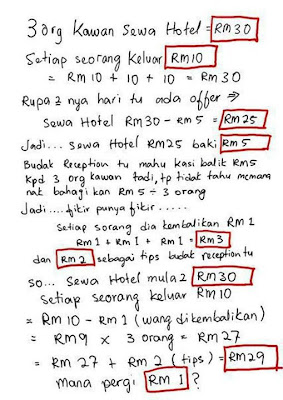 3 org Kawan Sewa Hotel = RM30
Setiap seorang Keluar RM10
= RM 10 + 10 + 10 = RM 30
Rupa2 nya hari tu ada offer ⇒
Sewa Hotel RM30 - RM 5 = RM25
Jadi... sewa Hotel RM25 baki RM 5
Budak Reception tu mahu kasi balik RM5
Kpd 3 org kawan tadi, tp tidak tahu mcmana
nat bahagi kan RM5 ÷ 3 orang
Jadi.... fikir punya fikir......
Setiap sorang dia kembalikan RM 1
RM 1 + RM 1 + RM 1 = RM3
dan RM 2 sebagai tips budak reception tu
so... Sewa Hotel mula2 RM30
Setiap seorang keluar RM10
= RM 10 - RM 1 (wang dikembalikan)
= RM9 x 3 orang = RM 27
= RM 27 + RM 2 (tips) = RM29
mana pergi RM 1 ?